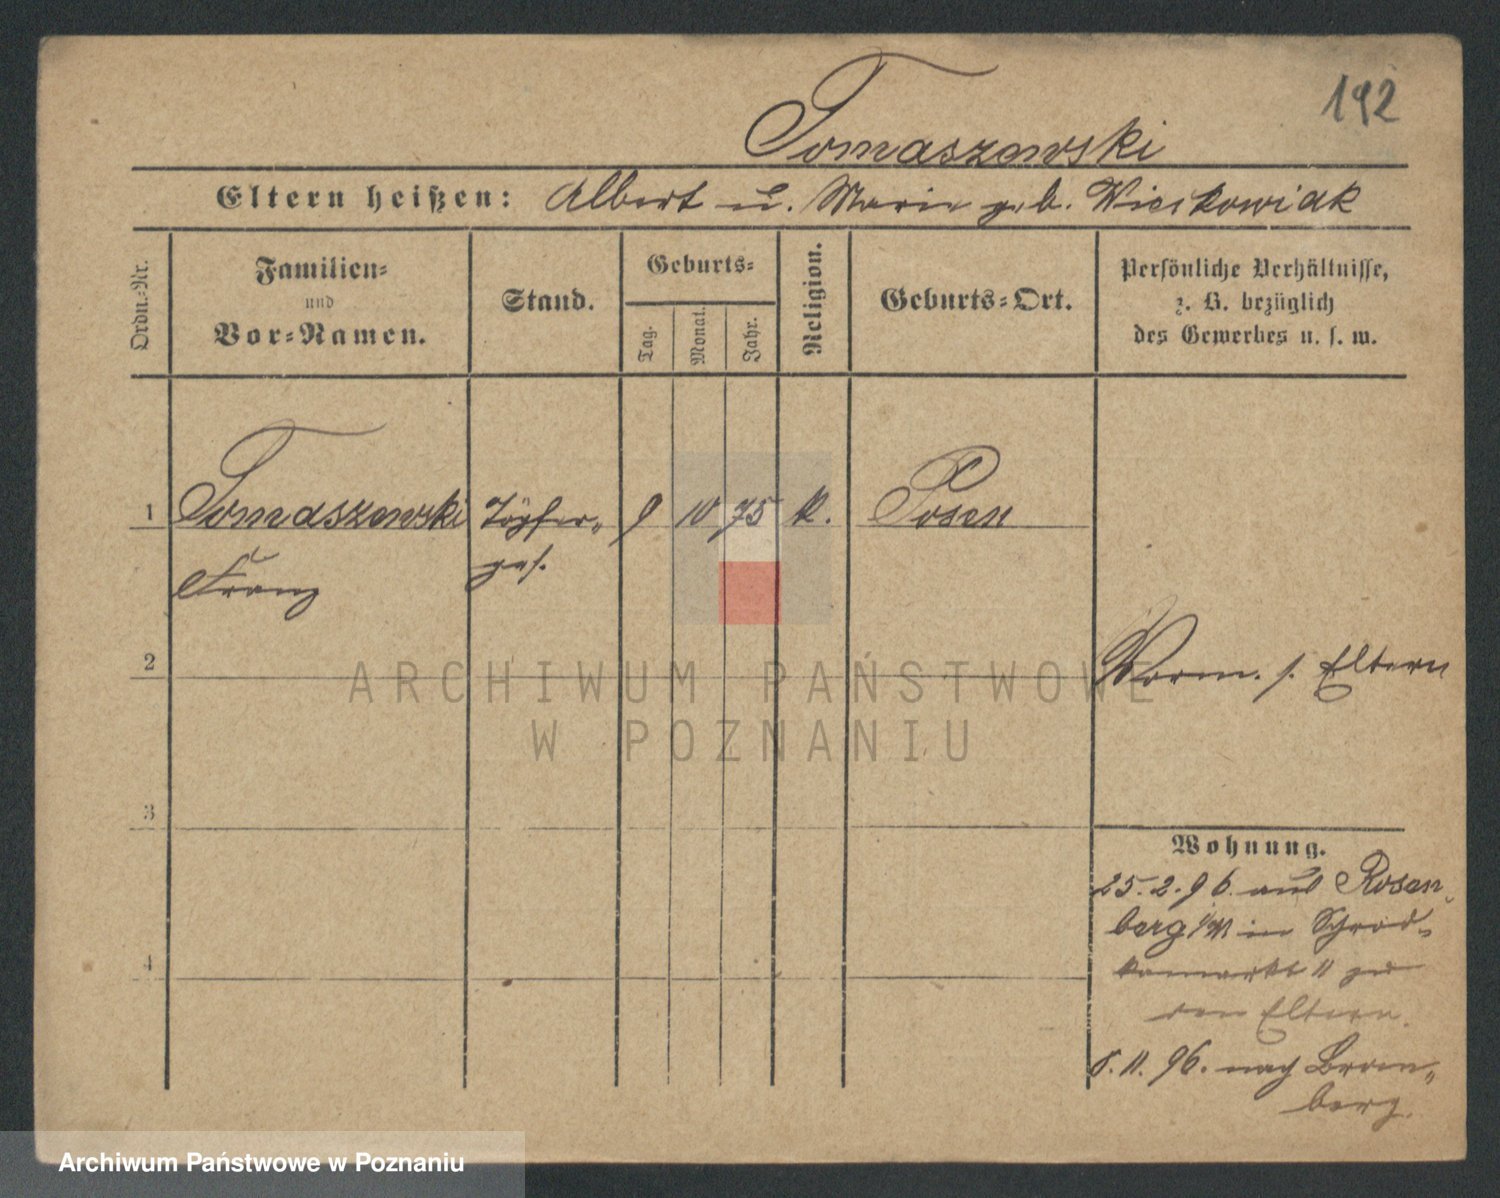 192
Tomaszewski
Eltern heißen: Albert u. Marie geb. Wieczkowiak
Ordn.-Nr.
Familien-
und
Vor-Namen.
Stand.
Geburts-
Tag.
Monat.
Jahr.
Religion.
Geburts-Ort.
Persönliche Verhältnisse,
z. B. bezüglich
des Gewerbes u. s. w.
1 Tomaszewski Töpfer- 9 10 75 k. Posen
Franz ges.
2
Vorm. s. Eltern
ARCHIWUM PAŃSTWOWE
W POZNANIU
3
Wohnung.
25.2.96. aus Rosen-
berg in Schrod-
4
kamarkt 11 zu
den Eltern.
8.11.96. nach Brom-
berg.
Archiwum Państwowe w Poznaniu